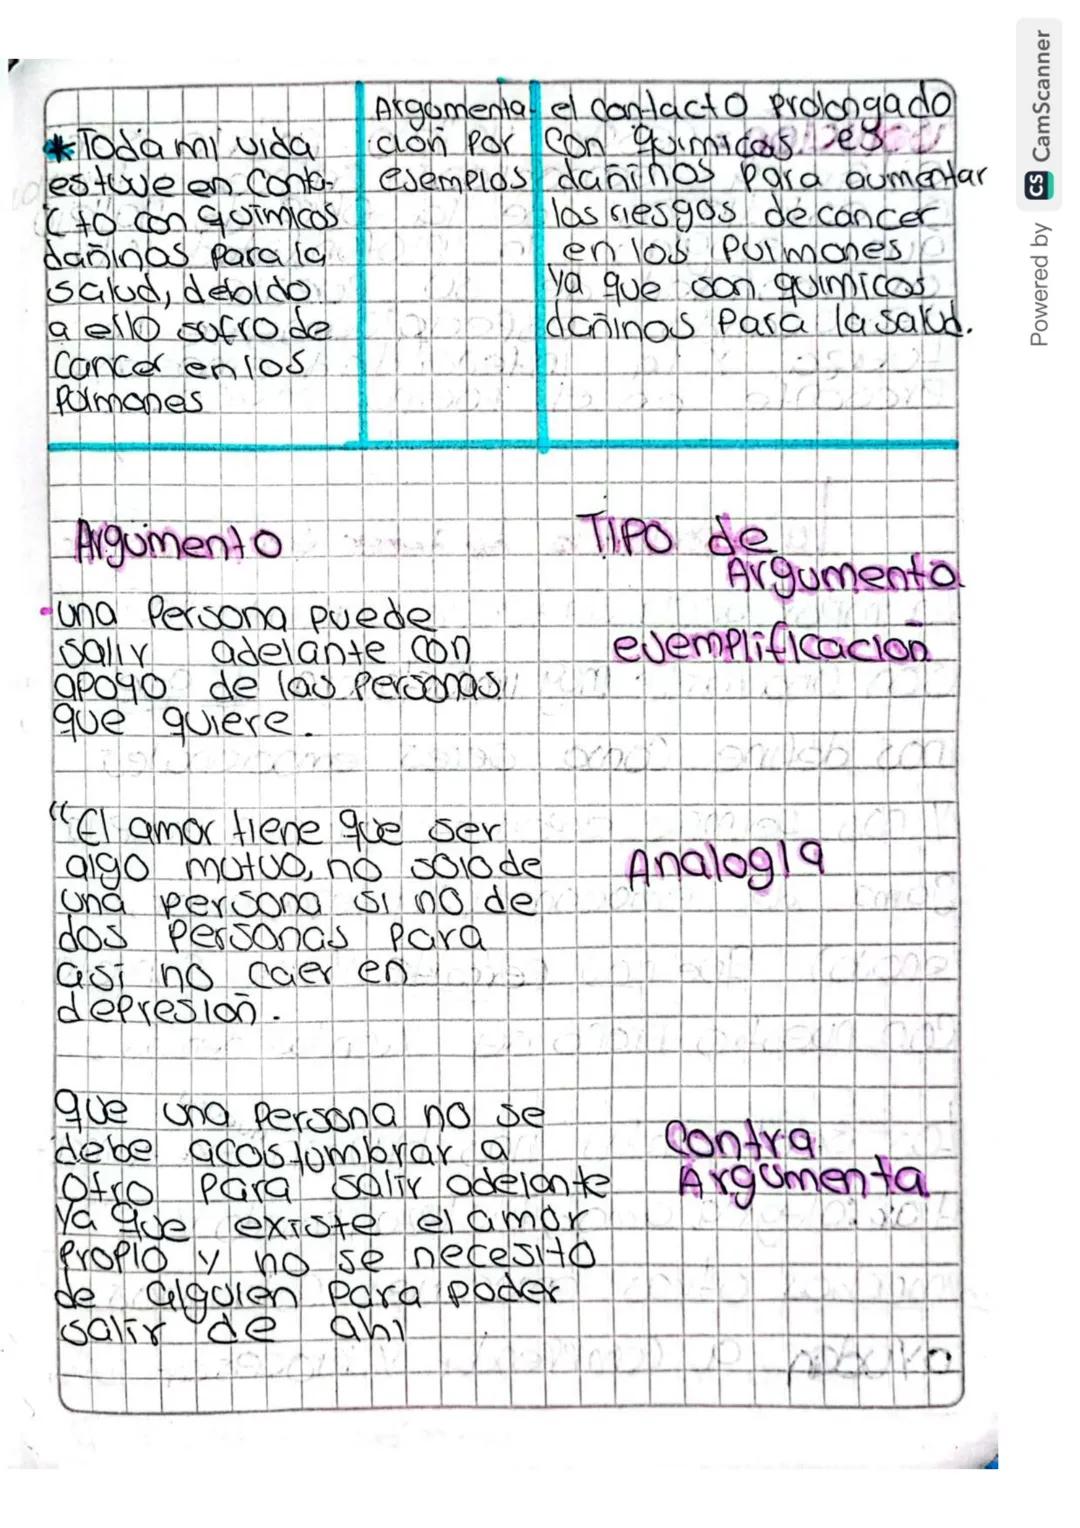 * Toda mi vida
estuve en conta-
cto con químicos
dañinos para la
salud, debido
a ello sufro de
cancer en los
pulmones
Argumenta-
ción por
ejemplos
el contacto prolongado
con químicos es
dañinos para aumentar
los riesgos de cancer
en los pulmones
ya que son químicos
dañinos para la salud.
Argumento
TIPO de
Argumento
una persona puede
salir adelante con
apoyo de las personas
que quiere.
ejemplificación
"El amor tiene que ser
algo mutuo, no solo de
una persona si no de
dos personas para
así no caer en
depresión.
Analogía
que una persona no se
debe acostumbrar a
otro para salir adelante
ya que existe el amor
propio y no se necesito
de alguien para poder
salir de ahi
Contra
Argumenta
Powered by CS CamScanner